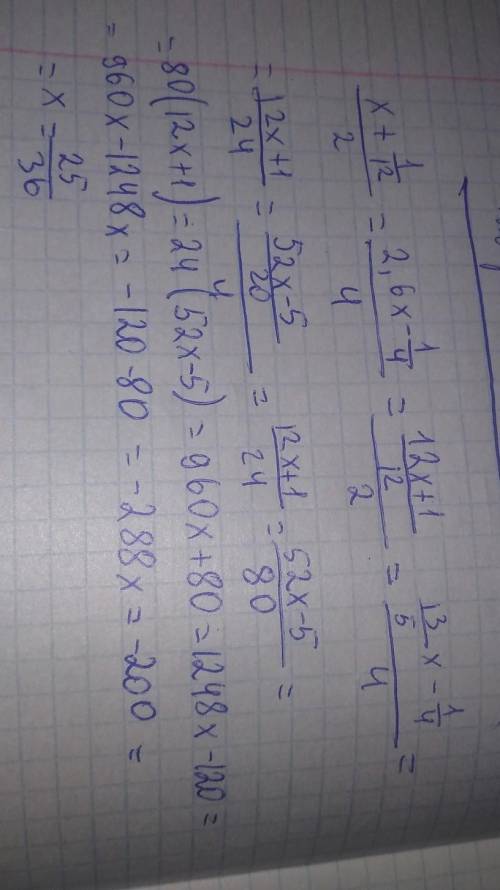 (x + 1/12)/2 = (2,6x - 1/4)/4 = ((12x+1)/12)/2 = (13/5 x - 1/4)/4 =
= (12x+1)/24 = ((52x-5)/20)/4 = (12x+1)/24 = (52x-5)/80 =
= 80(12x+1) = 24(52x-5) = 960x+80 = 1248x-120 =
= 960x-1248x = -120-80 = -288x = -200 =
= x = 25/36